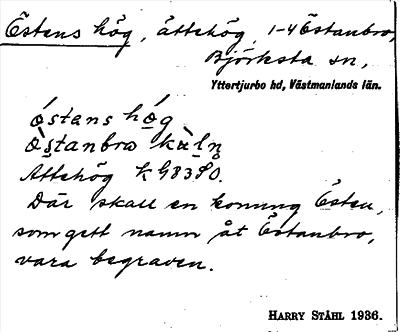 Östens hög, ättehög, 1-4 Östanbro,
Björksta sn,
Yttertjurbo hd, Västmanlands län.
östans hǫg
ö̀stanbro kùln̥
Ättehög k 98380.
Där skall en konung Östen,
som gett namn åt Östanbro,
vara begraven.
HARRY STÅHL 1936.